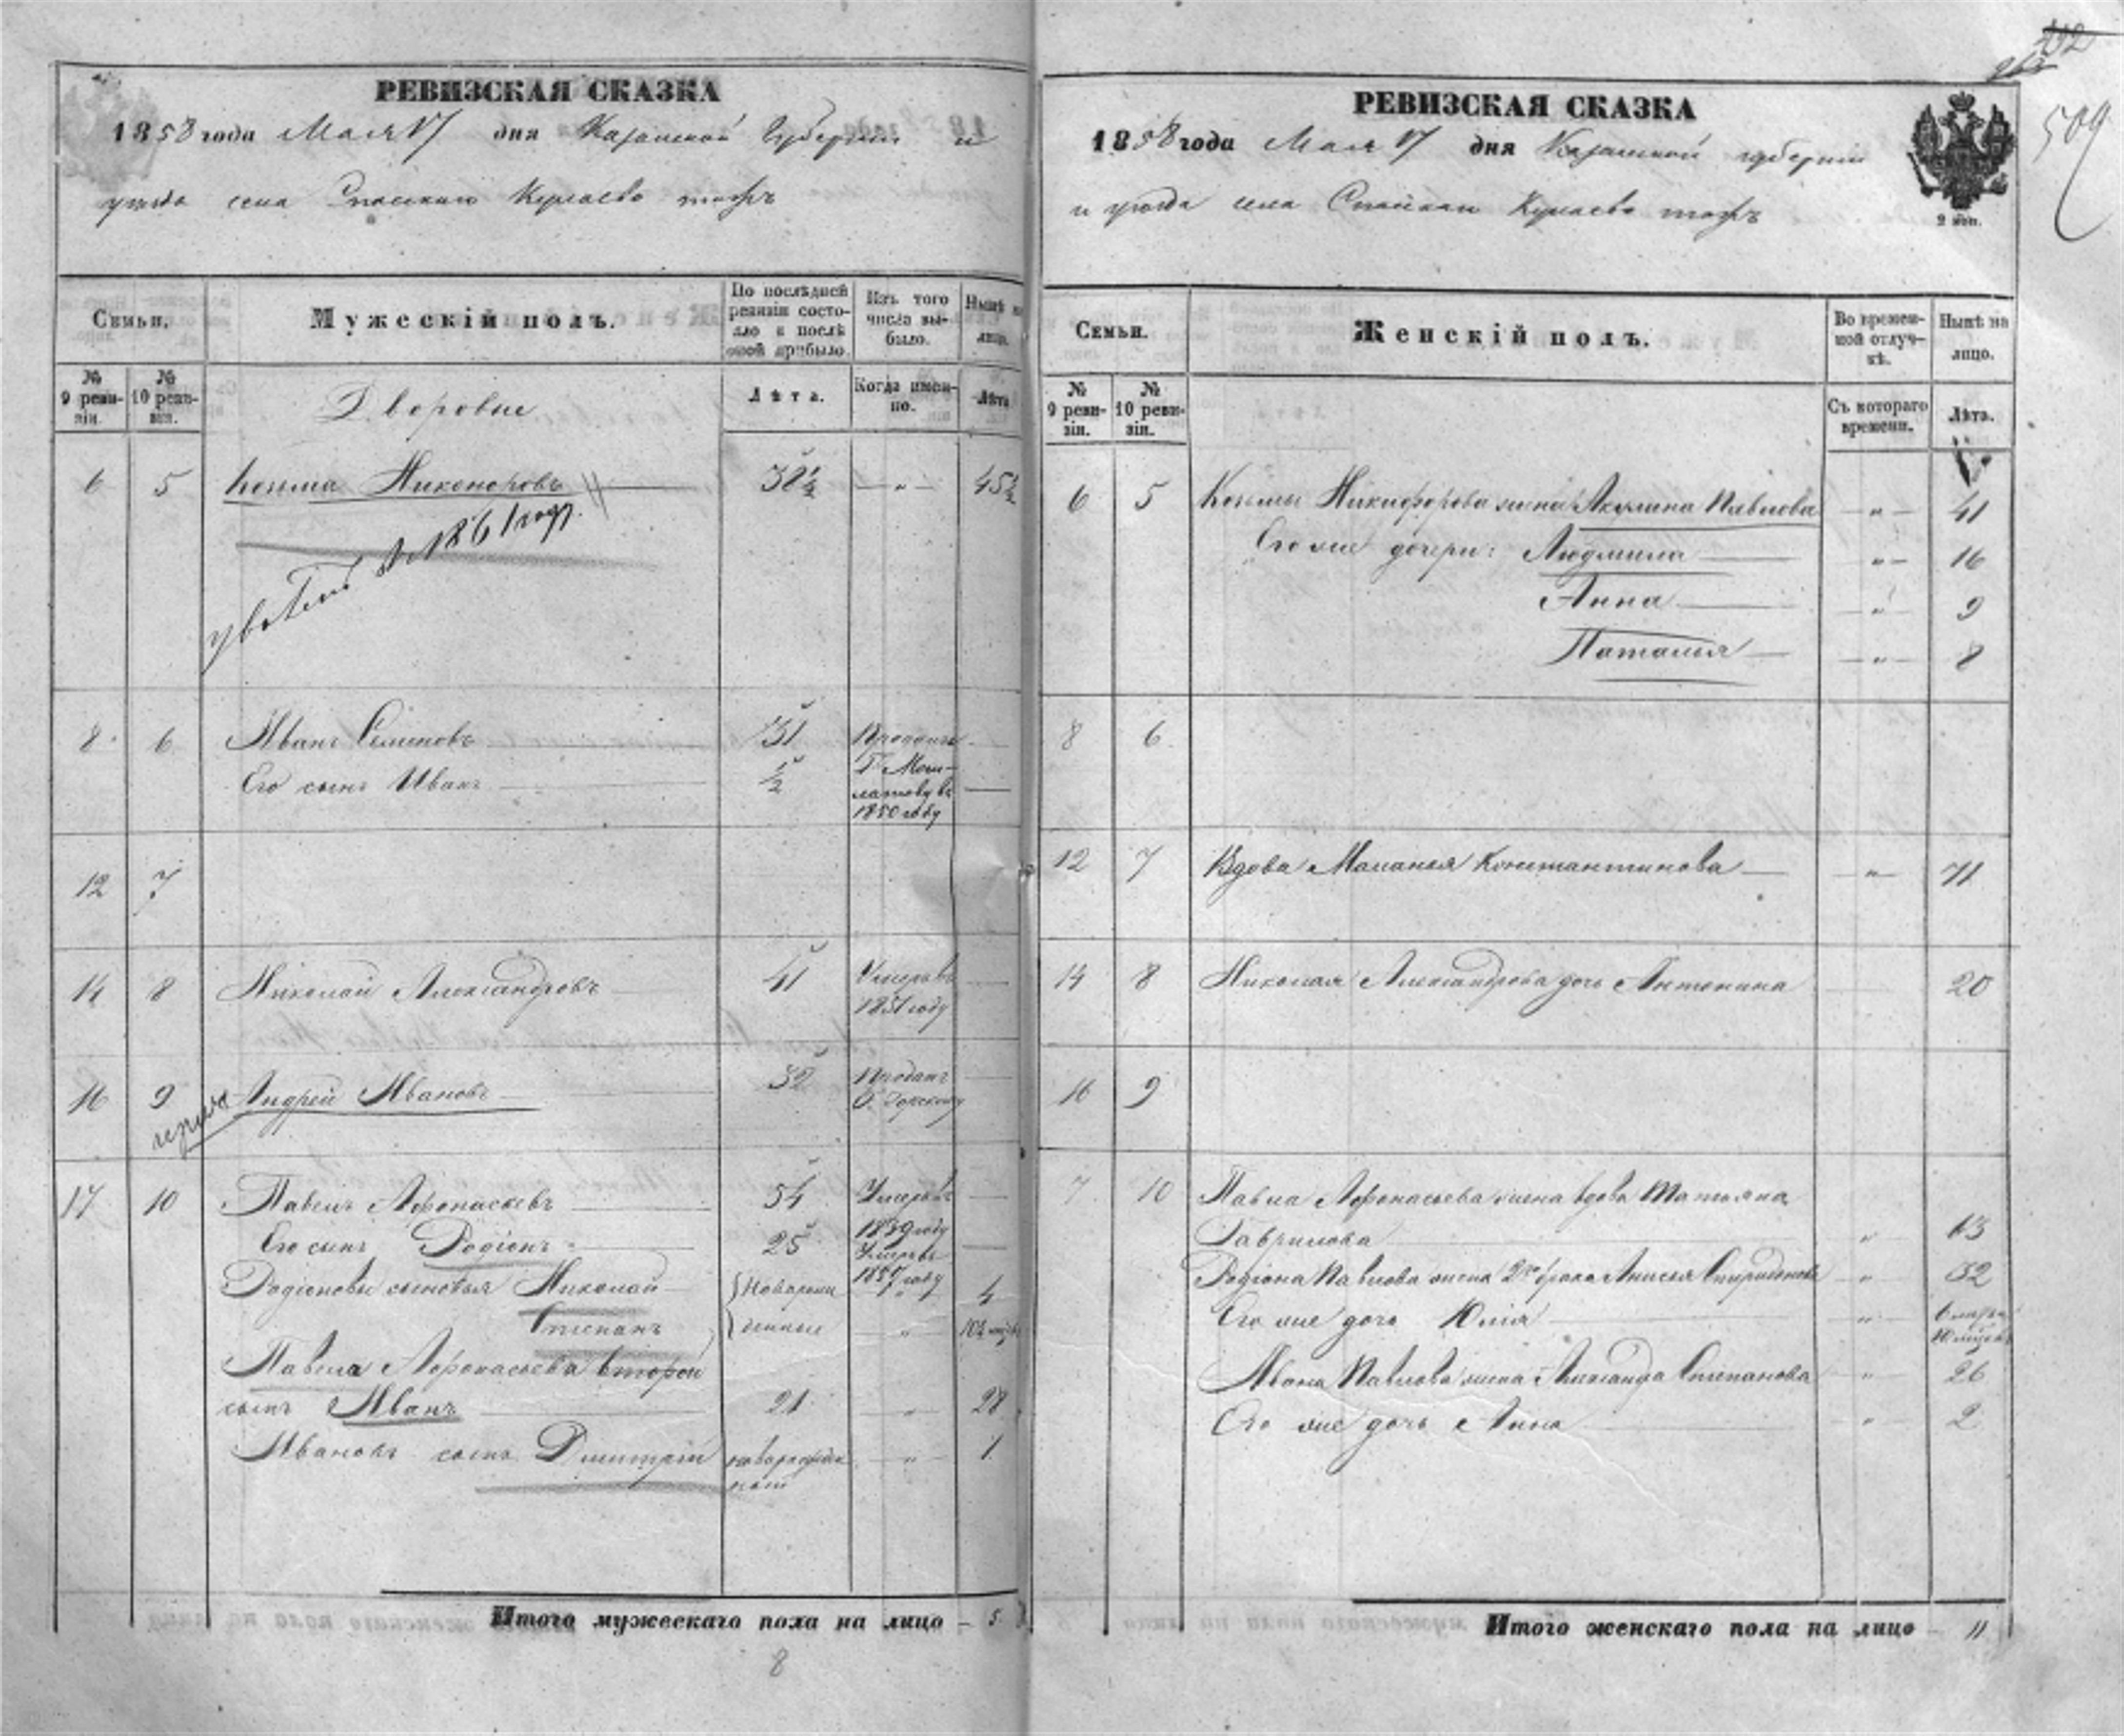 РЕВИЗСКАЯ СКАЗКА
1858 года Мая 17 дня Казанской Губернии и
уезда села Спаскаго Кулаево тожъ
Семьи.
Мужескій полъ.
По послѣдней ревизіи состояло и послѣ оной прибыло.
Изъ того числа выбыло.
Нынѣ на лицо.
№ 9 ревизіи.
№ 10 ревизіи.
Дворовые
Лѣта.
Когда именно.
Лѣта
6 5 Козьма Никоноровъ 38½ — „ — 45½
1861 году.
8 6 Иванъ Семеновъ 31 Проданъ —
Его сынъ Иванъ ½ Г. —
1850 году
12 7
14 8 Николай Александровъ 41 Умеръ въ —
1851 году
16 9 Андрей Ивановъ 32 Проданъ —
17 10 Павелъ Афонасьевъ 54 Умеръ въ —
Его сынъ Родіонъ 25 Умеръ въ —
1857 году
Родіоновы сыновья Николай Новорож „ 4
Степанъ денные „
Павела Афонасьева второй
сынъ Иванъ 21 „ 28
Ивановъ сынъ Дмитрій новорожден „ 1
ный
Итого мужескаго пола на лицо — 5
8
РЕВИЗСКАЯ СКАЗКА
1858 года Мая 17 дня Казанской губернии
и уезда села Спаскаго Кулаево тожъ
2 коп.
509
Семьи.
Женскій полъ.
Во временной отлучкѣ.
Нынѣ на лицо.
№ 9 ревизіи.
№ 10 ревизіи.
Съ котораго времени.
Лѣта.
6 5 Козьмы Никифорова жена Акулина Павлова — „ — 41
Его же дочери: Людмила — „ — 16
Анна — „ — 9
Наталья — „ — 8
8 6
12 7 Вдова Маланья Константинова — „ — 71
14 8 Николая Александрова дочь Антонина 20
16 9
7 10 Павла Афонасьева жена вдова Татьяна
Гаврилова „ 63
Родіона Павлова жена 2го брака Анисья Спиридонова „ 32
Его же дочь Юлія „
Ивана Павлова жена Александра Степанова „ 26
Его же дочь Анна „ 2
Итого женскаго пола на лицо 11